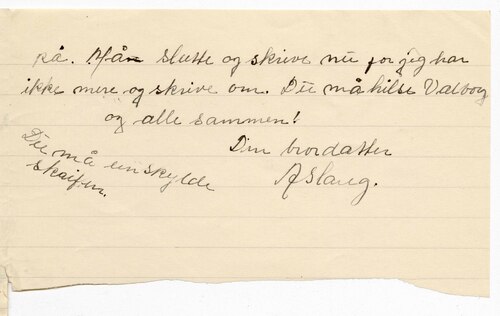 på. Mån slutte og skrive nu for jeg har
ikke mere og skrive om. Du må hilse Valbog
og alle sammen!
Din brordatter
Aslaug.
Du må unskylde
skriften.